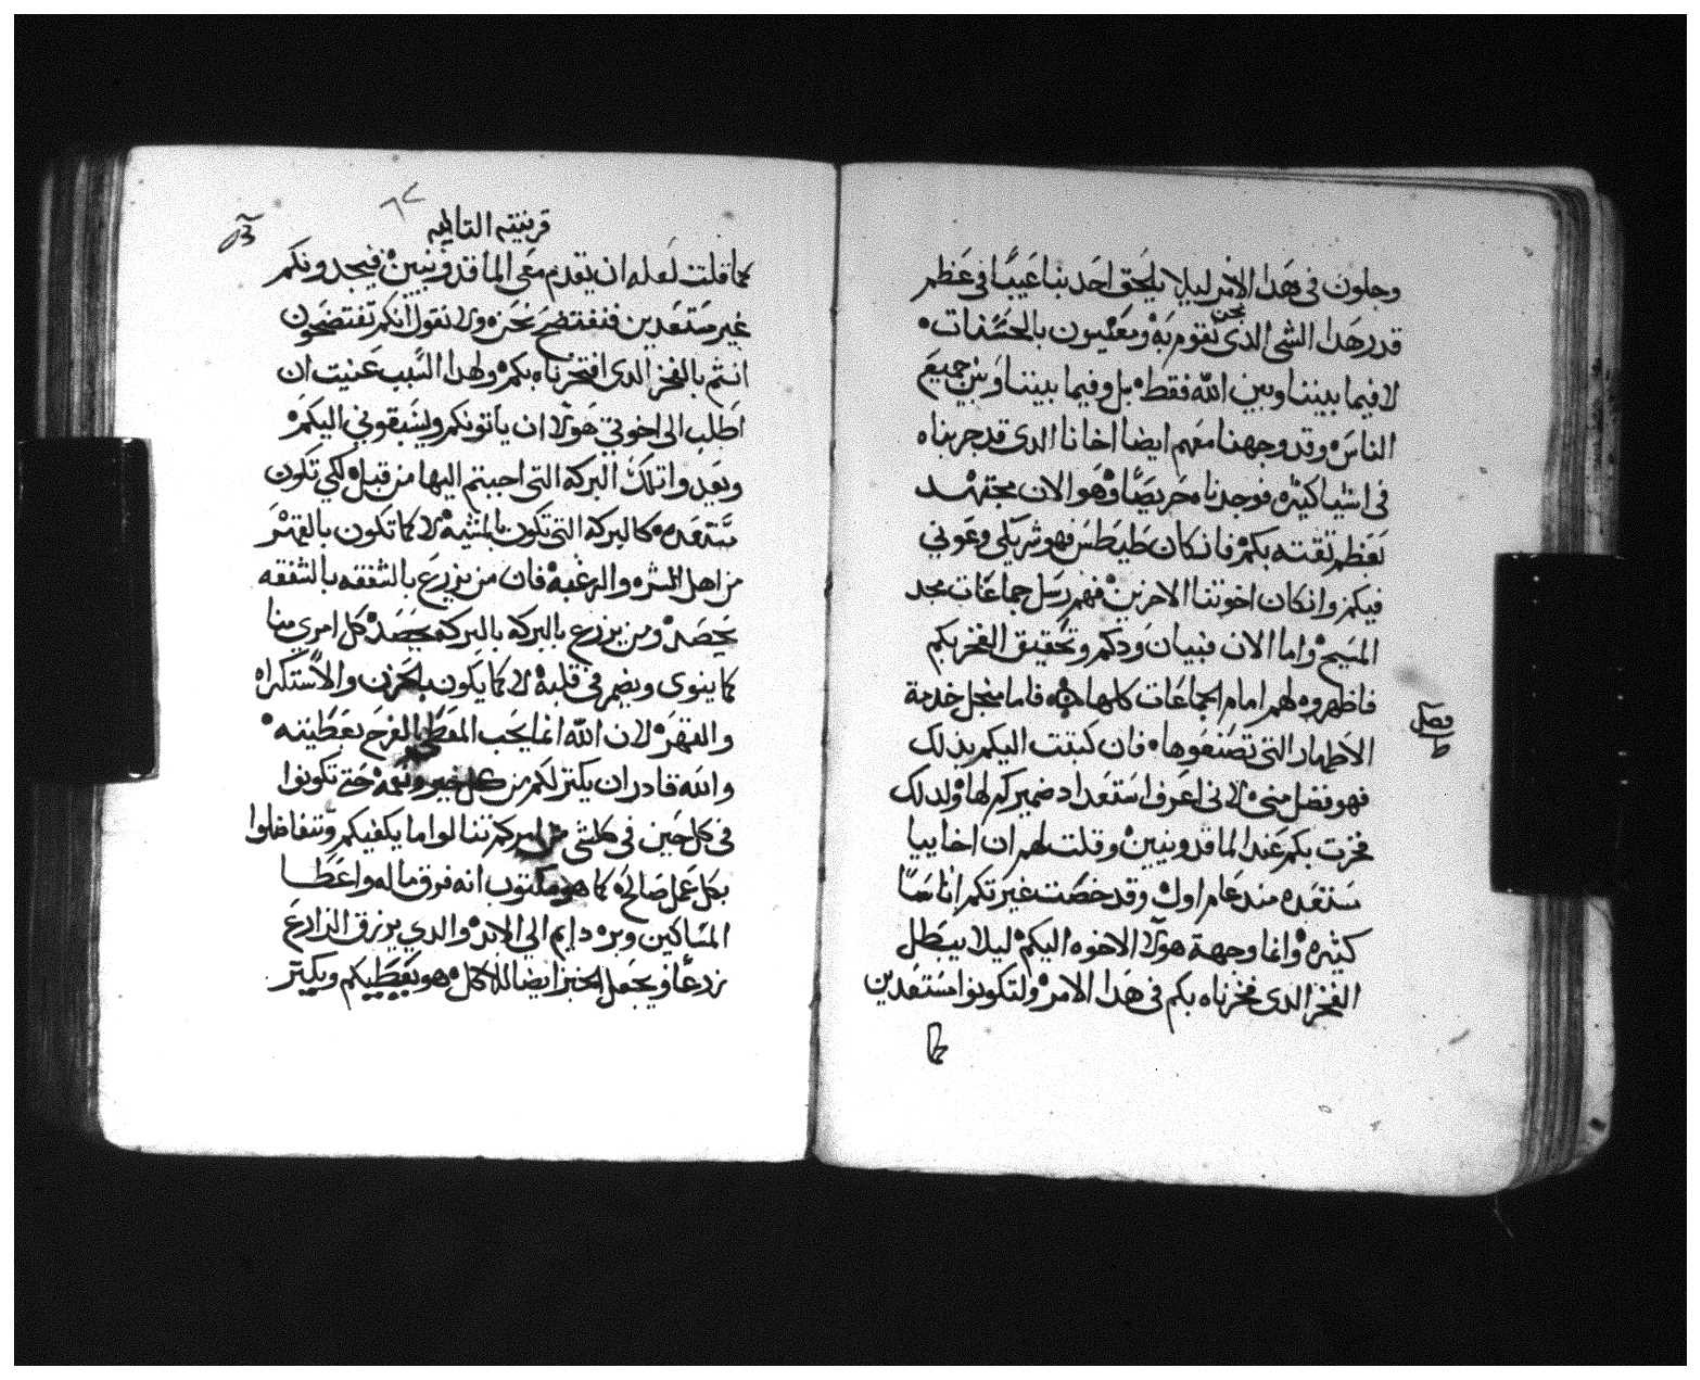 وجلون فى هدا الامر ليلا يلحق احد بنا عيبًا فى عظم
قدر هدا الشى الدى نحن نقوم به ومعنيون بالحسنات
لا فيما بيننا وبين الله فقط بل وفيما بيننا وبين جميع
الناس وقد وجهنا معهم ايضا اخانا الدى قد جربناه
فى اشيا كثيره فوجدناه حريصًا وهو الان مجتهد
لعظم ثقته بكم فان كان طيطس فهو شريكى وعونى
فيكم وان كان اخوتنا الاخرين فهم رسل جماعات مجد
المسيح واما الان فبيان ودكم وتحقيق الفخر بكم
فاظهروه لهم امام الجماعات كلها فاما منجل خدمة
فصل
ط
الاطهار التى تصنعوها فان كتبت اليكم بذلك
فهو فضل منى لانى اعرف استعداد ضميركم لها ولدلك
فخرت بكم عند الماقدونيين وقلت لهم ان اخاييا
مستعده مند عام اول وقد خصت غيرتكم اناسًا
كثيره وانما وجهة هولا الاخوه اليكم ليلا يبطل
الفخر الدى فخرناه بكم فى هدا الامر ولتكونوا مستعدين
كما
قرنتيه التانيه
كما قلت لعله ان يقدم معى الماقدونيين فيجدونكم
غير مستعدين فنفتضح نحن ولا نقول انكم تفتضحون
انتم بالفخر الدى افتخرناه بكم ولهدا السبب عنيت ان
اطلب الى اخوتي هولا ان ياتونكم ويسبقونى اليكم
ويعدوا تلك البركه التى اجبتم اليها من قبل لكي تكون
مستعده كالبركه التى تكون بالمشيه لا كما تكون بالقهر
من اهل الشره والرغبه فان من يزرع بالشفقه بالشفقه
يحصد ومن يزرع بالبركه بالبركه يحصد كل امرى منا
كما ينوى ويضمر فى قلبه لا كما يكون بالحزن والاستكراه
والقهر لان الله انما يحب المعطى بالفرح بعطيته
والله قادر ان يكتر لكم من كل خير ونعمه حتى تكونوا
فى كل حين فى كلشى من امركم تنالوا ما يكفيكم وتتفاضلوا
بكل عمل صالح كما هو مكتوب انه فرق ماله واعطا
المساكين وبره دايم الي الابد والدي يرزق الزارع
زرعًا ويجعل الخبز ايضا للاكل هو يعطيكم ويكتر